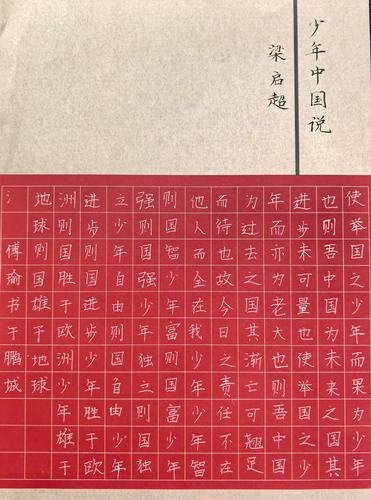 少年中国说
梁启超
使举国之少年而果为少年
也则吾中国为未来之国其
进步未可量也使举国之少
年而亦为老大也则吾中国
为过去之国其渐亡可翘足
而待也故今日之责任不在
他人而全在我少年少年智
则国智少年富则国富少年
强则国强少年独立则国独
立少年自由则国自由少年
进步则国进步少年胜于欧
洲则国胜于欧洲少年雄于
地球则国雄于地球
傅瑜书于鹏城